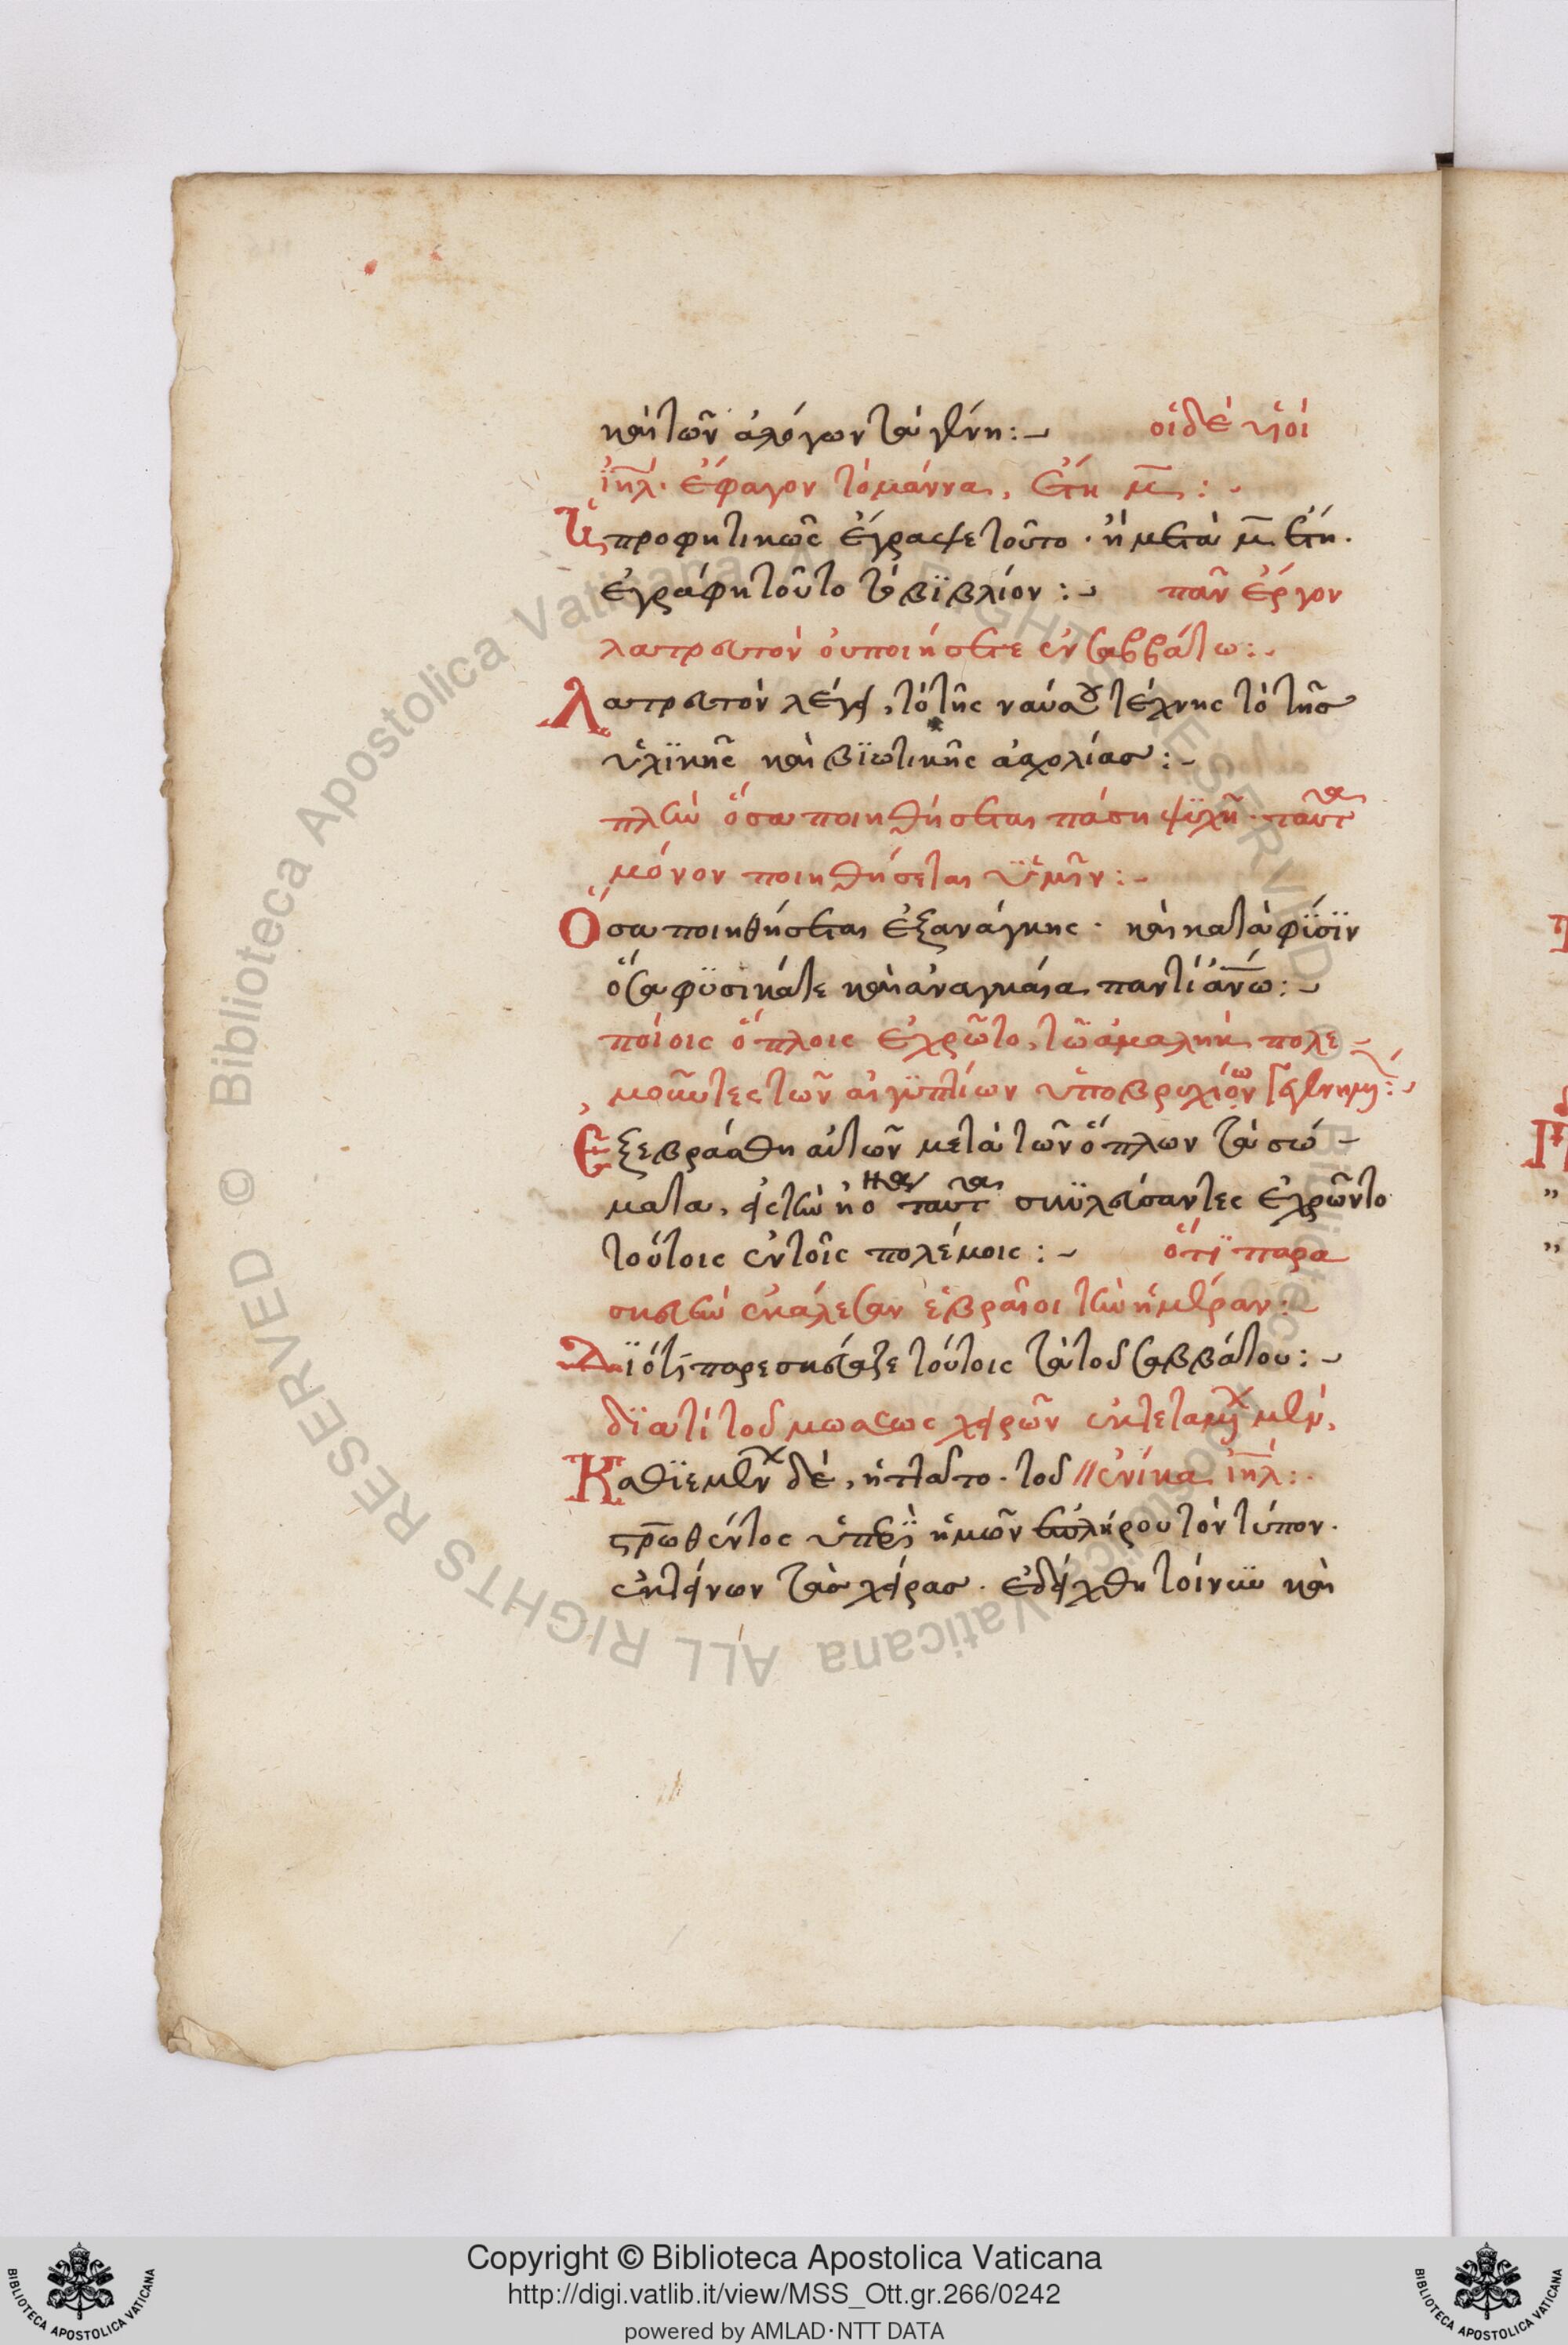 καὶ τῶν ἀλόγων τὰ γένη :- οἱ δὲ υἱοὶ
ἰηλ. ἔφαγον τὸ μάννα, ἔτη μ :-
προφητικῶς ἔγραψε τοῦτο · ἢ μετὰ μ ἔτη.
ἐγράφη τοῦτο τὸ βϊβλίον :- πᾶν ἔργον
λατρευτὸν οὐ ποιήσετε ἐν σαββάτω :-
Λατρευτὸν λέγει, τὸ τῆς τέχνης τὸ τῆς
ὑλϊκῆς καὶ βϊωτικῆς ἀσχολίας :-
πλὴν ὅσα ποιηθήσεται πάση ψϋχῆ · ταῦτα
μόνον ποιηθήσεται ὑμῖν :-
Ὅσα ποιηθήσεται ἐξανάγκης · καὶ κατὰ φϋσϊν
ὅσα φϋσικά τε καὶ ἀναγκαία παντὶ ἀνω :-
ποίοις ὅπλοις ἐχρῶτο, τῶ ἀμαλὴκ πολε-
μοῦντες τῶν αἰγϋπτίων ὑποβρυχίων
Ἐξεβράσθη αὐτῶν μετὰ τῶν ὅπλων τὰ σώ-
ματα, ταῦτα συλεύσαντες ἐχρῶντο
τούτοις ἐν τοῖς πολέμοις :- ὅτϊ παρα
σκευὴν ἐκάλεσαν ἑβραῖοι τὴν ἡμέραν :-
Δϊότι παρεσκεύαζε τούτοις τὰ τοῦ σαββάτου :-
δϊατί τοῦ μωσέως χειρῶν ἐκτεταμένων μὲν,
Καθϊεμένων δὲ, ἡττᾶτο · τοῦ // ἐνίκα ἰηλ :-
στρωθέντος ὑπὲρ ἡμῶν ἐπλήρου τὸν τύπον ·
ἐκτείνων τὰς χείρας · ἐδείχθη τοίνυν καὶ
Copyright © Biblioteca Apostolica Vaticana
http://digi.vatlib.it/view/MSS_Ott.gr.266/0242
powered by AMLAD·NTT DATA